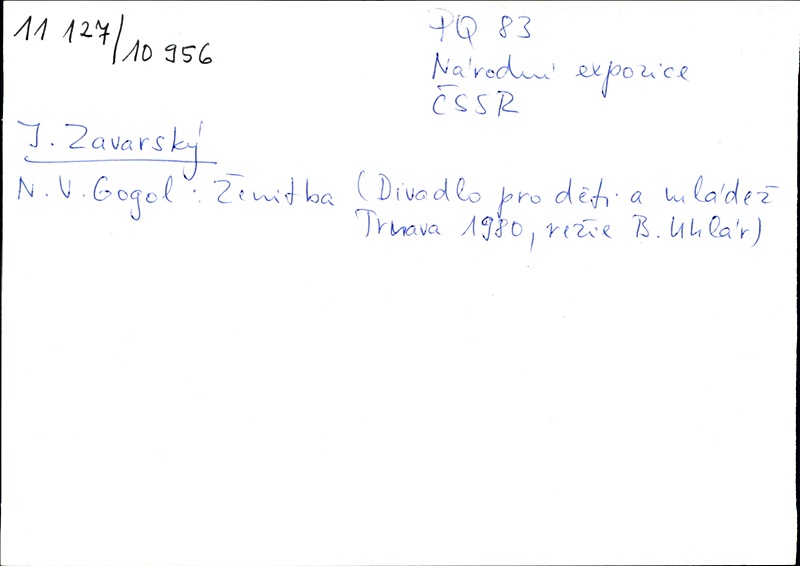 11 127/10 956
PQ 83
Národní expozice
ČSSR
J. Zavarský
N. V. Gogol: Ženitba (Divadlo pro děti a mládež
Trnava 1980, režie B. Uhlár)